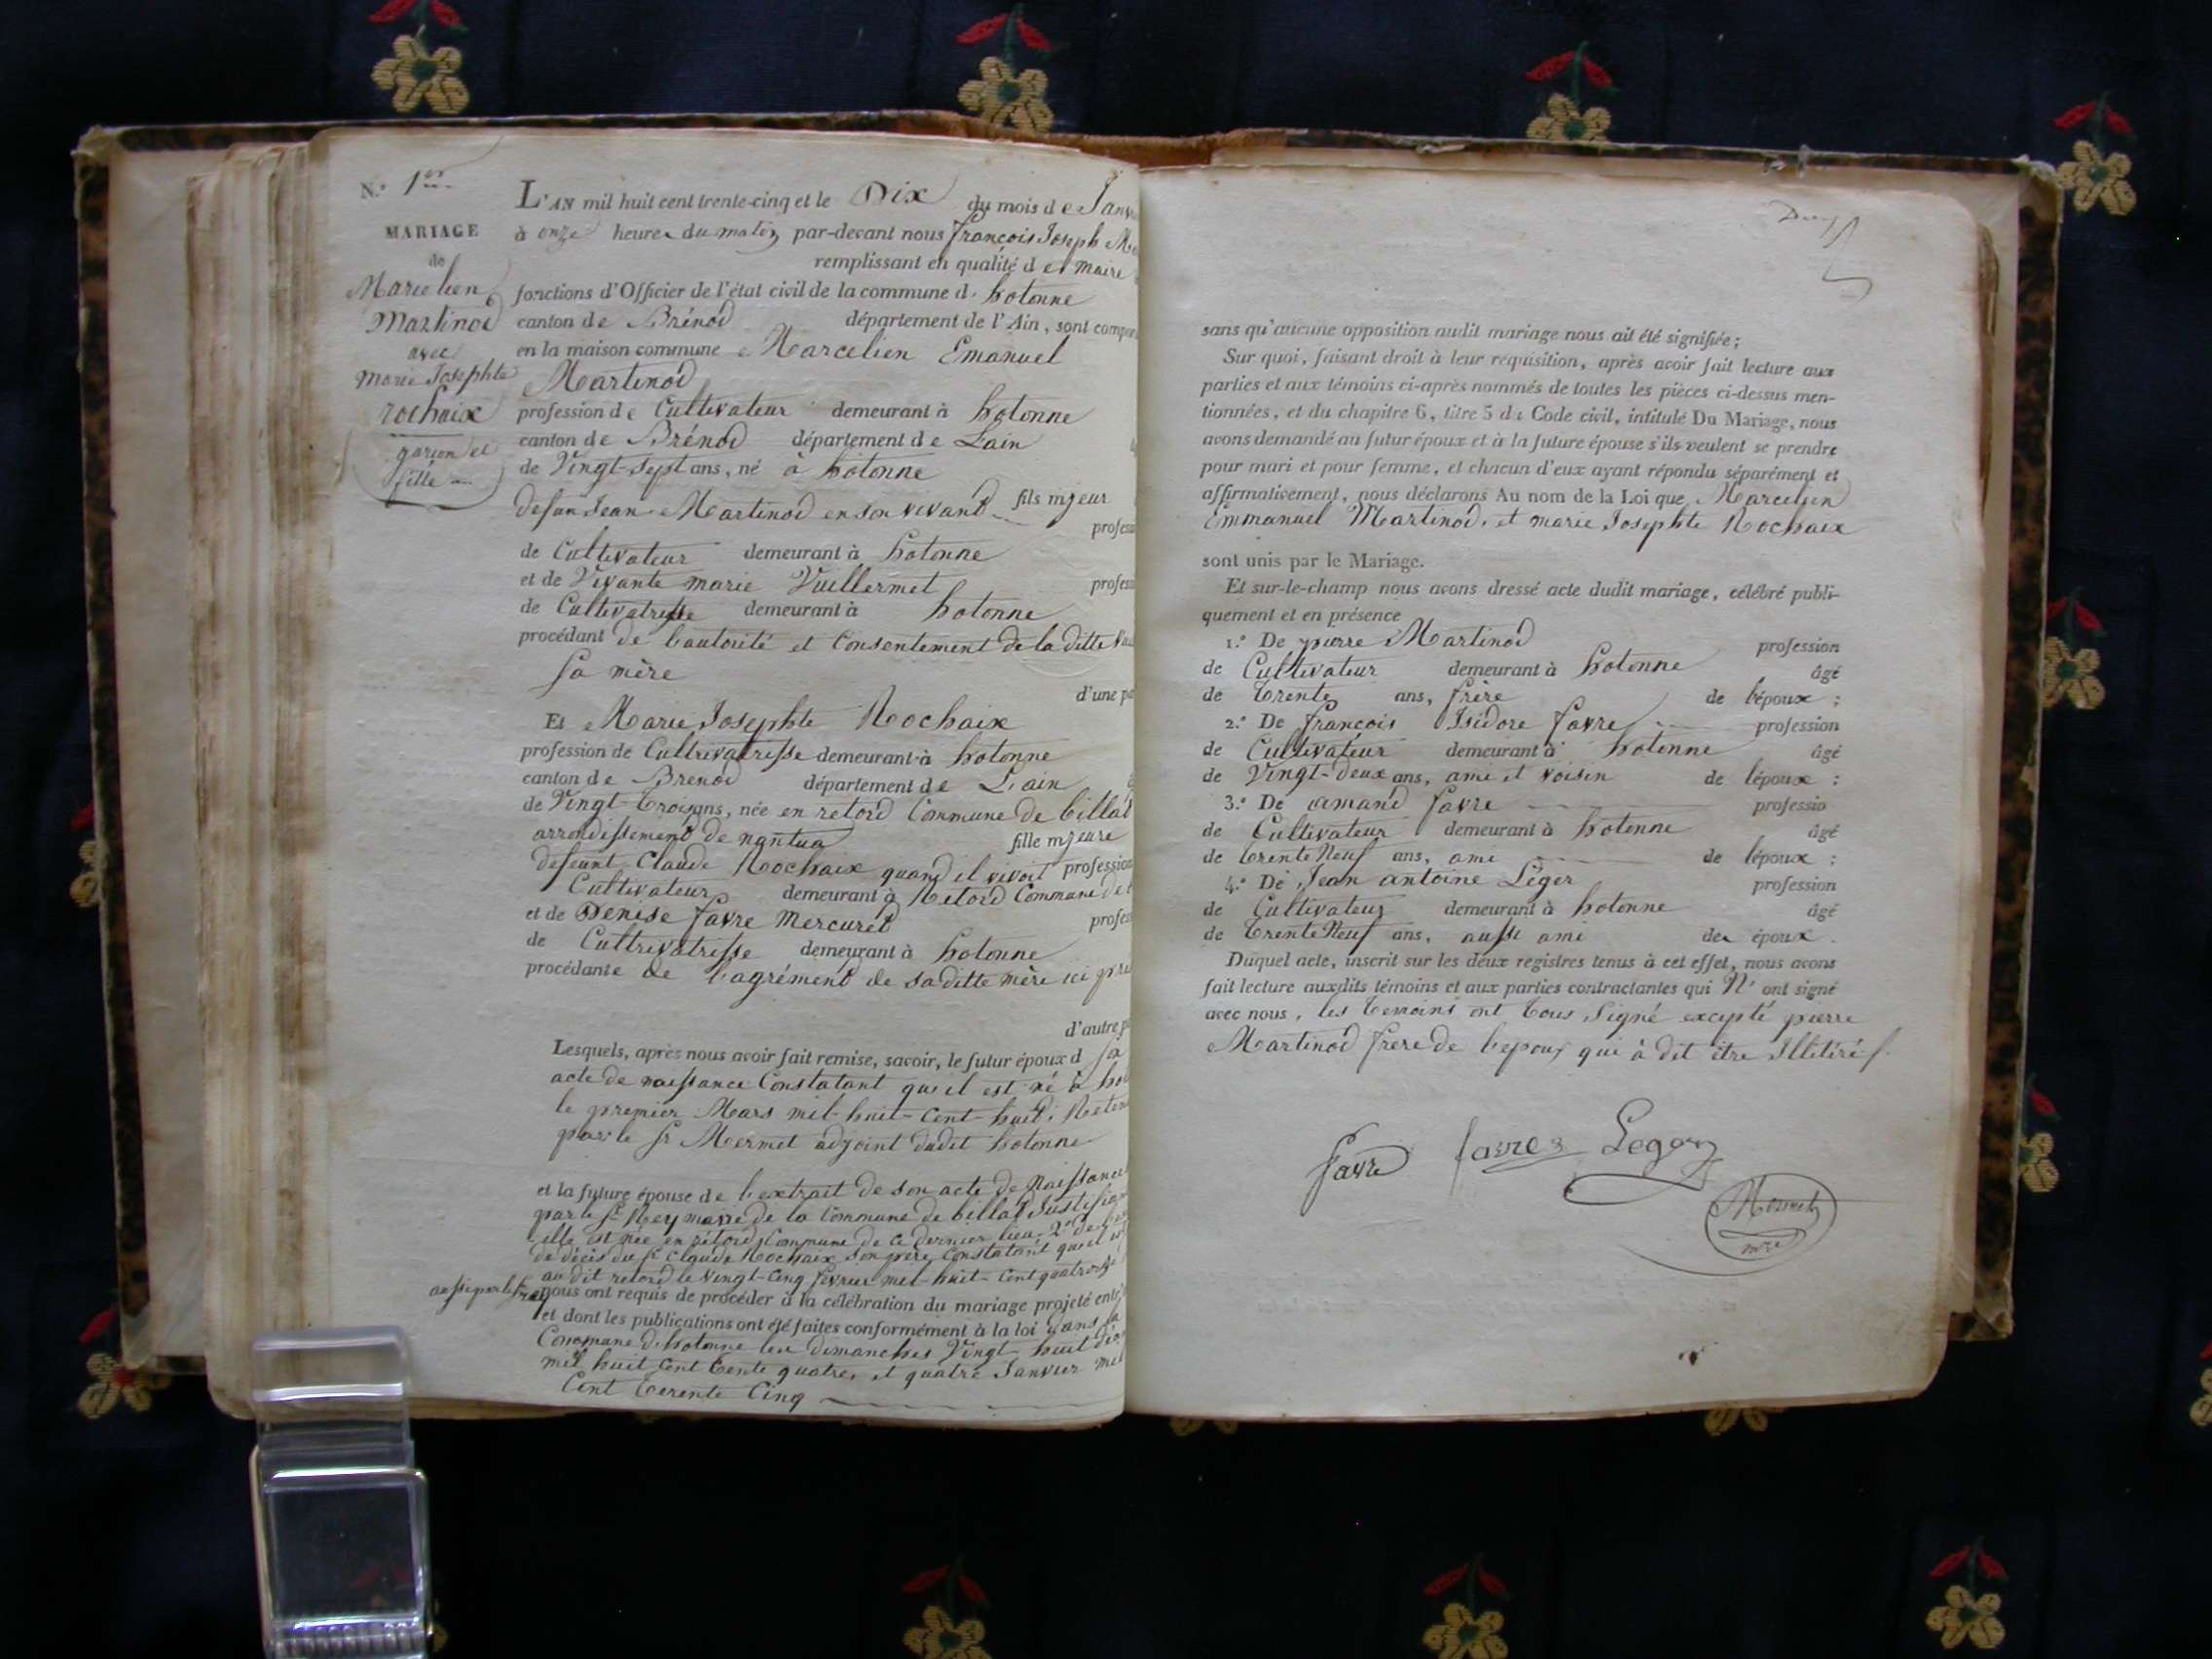 N.° 1er
MARIAGE
de
Marcelien
Martinod
avec
Marie Josephte
rochaix
garçon et
fille
L'AN mil huit cent trente-cinq et le Dix du mois de Janv
à onze heures du matin par-devant nous françois Joseph Me
remplissant en qualité de maire
fonctions d'Officier de l'état civil de la commune d. hotonne
canton de Brénod département de l'Ain, sont compar
en la maison commune Marcelien Emanuel
Martinod
profession de Cultivateur demeurant à hotonne
canton de Brénod département de Lain
de Vingt-Sept ans, né à hotonne
fils mjeur
defun Jean Martinod en son vivant
profess
de Cultivateur demeurant à hotonne
et de Vivante marie Vuillermet profess
de Cultivatrisse demeurant à hotonne
procédant de l'autorité et Consentement de la ditte
sa mère
d'une pa
Et Marie Josephte Rochaix
profession de Cultrivatrisse demeurant à hotonne
canton de Brenod département de L'ain
de Vingt-trois ans, née en retord Commune de billat
arrondissement de nantua fille mjeure
defeunt Claude Rochaix quand il vivoit profession
Cultivateur demeurant à Retord Commune de
et de Denise favre Mercuret profess
de Cultrivatrisse demeurant à hotonne
procédante de l'agrément de sa ditte mère ici pre
d'autre pa
Lesquels, après nous avoir fait remise, savoir, le futur époux d sa
acte de naissance Constatant que il est né à hot
le premier Mars mil-huit-Cent-huit;
par le sr Mermet adjoint dudit hotonne
et la future épouse de l'extrait de son acte de Naissance
par le sr Rey maire de la Commune de billat
elle est née en rétord Commune de ce dernier lieu. 2°
de décès du sr Claude Rochaix son père, Constatant que il est
au dit retord le Vingt-Cinq février mil-huit-Cent quatorze
aussi par le sr rey
nous ont requis de procéder à la célébration du mariage projeté entre
et dont les publications ont été faites conformément à la loi dans la
Commune d. hotonne les dimanches Vingt huit
mil huit Cent trente quatre, et quatre Janvier mil
Cent terente Cinq
sans qu'aucune opposition audit mariage nous ait été signifiée;
Sur quoi, faisant droit à leur requisition, après avoir fait lecture aux
parties et aux témoins ci-après nommés de toutes les pièces ci-dessus men-
tionnées, et du chapitre 6, titre 5 du Code civil, intitulé Du Mariage, nous
avons demandé au futur époux et à la future épouse s'ils veulent se prendre
pour mari et pour femme, et chacun d'eux ayant répondu séparément et
affirmativement, nous déclarons Au nom de la Loi que Marcelien
Emmanuel Martinod, et marie Josephte Rochaix
sont unis par le Mariage.
Et sur-le-champ nous avons dressé acte dudit mariage, célébré publi-
quement et en présence
1.° De pierre Martinod profession
de Cultivateur demeurant à hotonne âgé
de trente ans, frère de l'époux ;
2.° De françois Isidore favre profession
de Cultivateur demeurant à hotonne âgé
de Vingt-deux ans, ami et voisin de l'époux ;
3.° De amand favre professio
de Cultivateur demeurant à hotonne âgé
de trente Neuf ans, ami de l'époux ;
4.° De Jean antoine Léger profession
de Cultivateur demeurant à hotonne âgé
de trente Neuf ans, aussi ami des époux.
Duquel acte, inscrit sur les deux registres tenus à cet effet, nous avons
fait lecture auxdits témoins et aux parties contractantes qui N' ont signé
avec nous, les temoins ont tous Signé excepté pierre
Martinod frère de l'epoux qui à dit être Illitéré
favre favre Leger
Mermet
mre